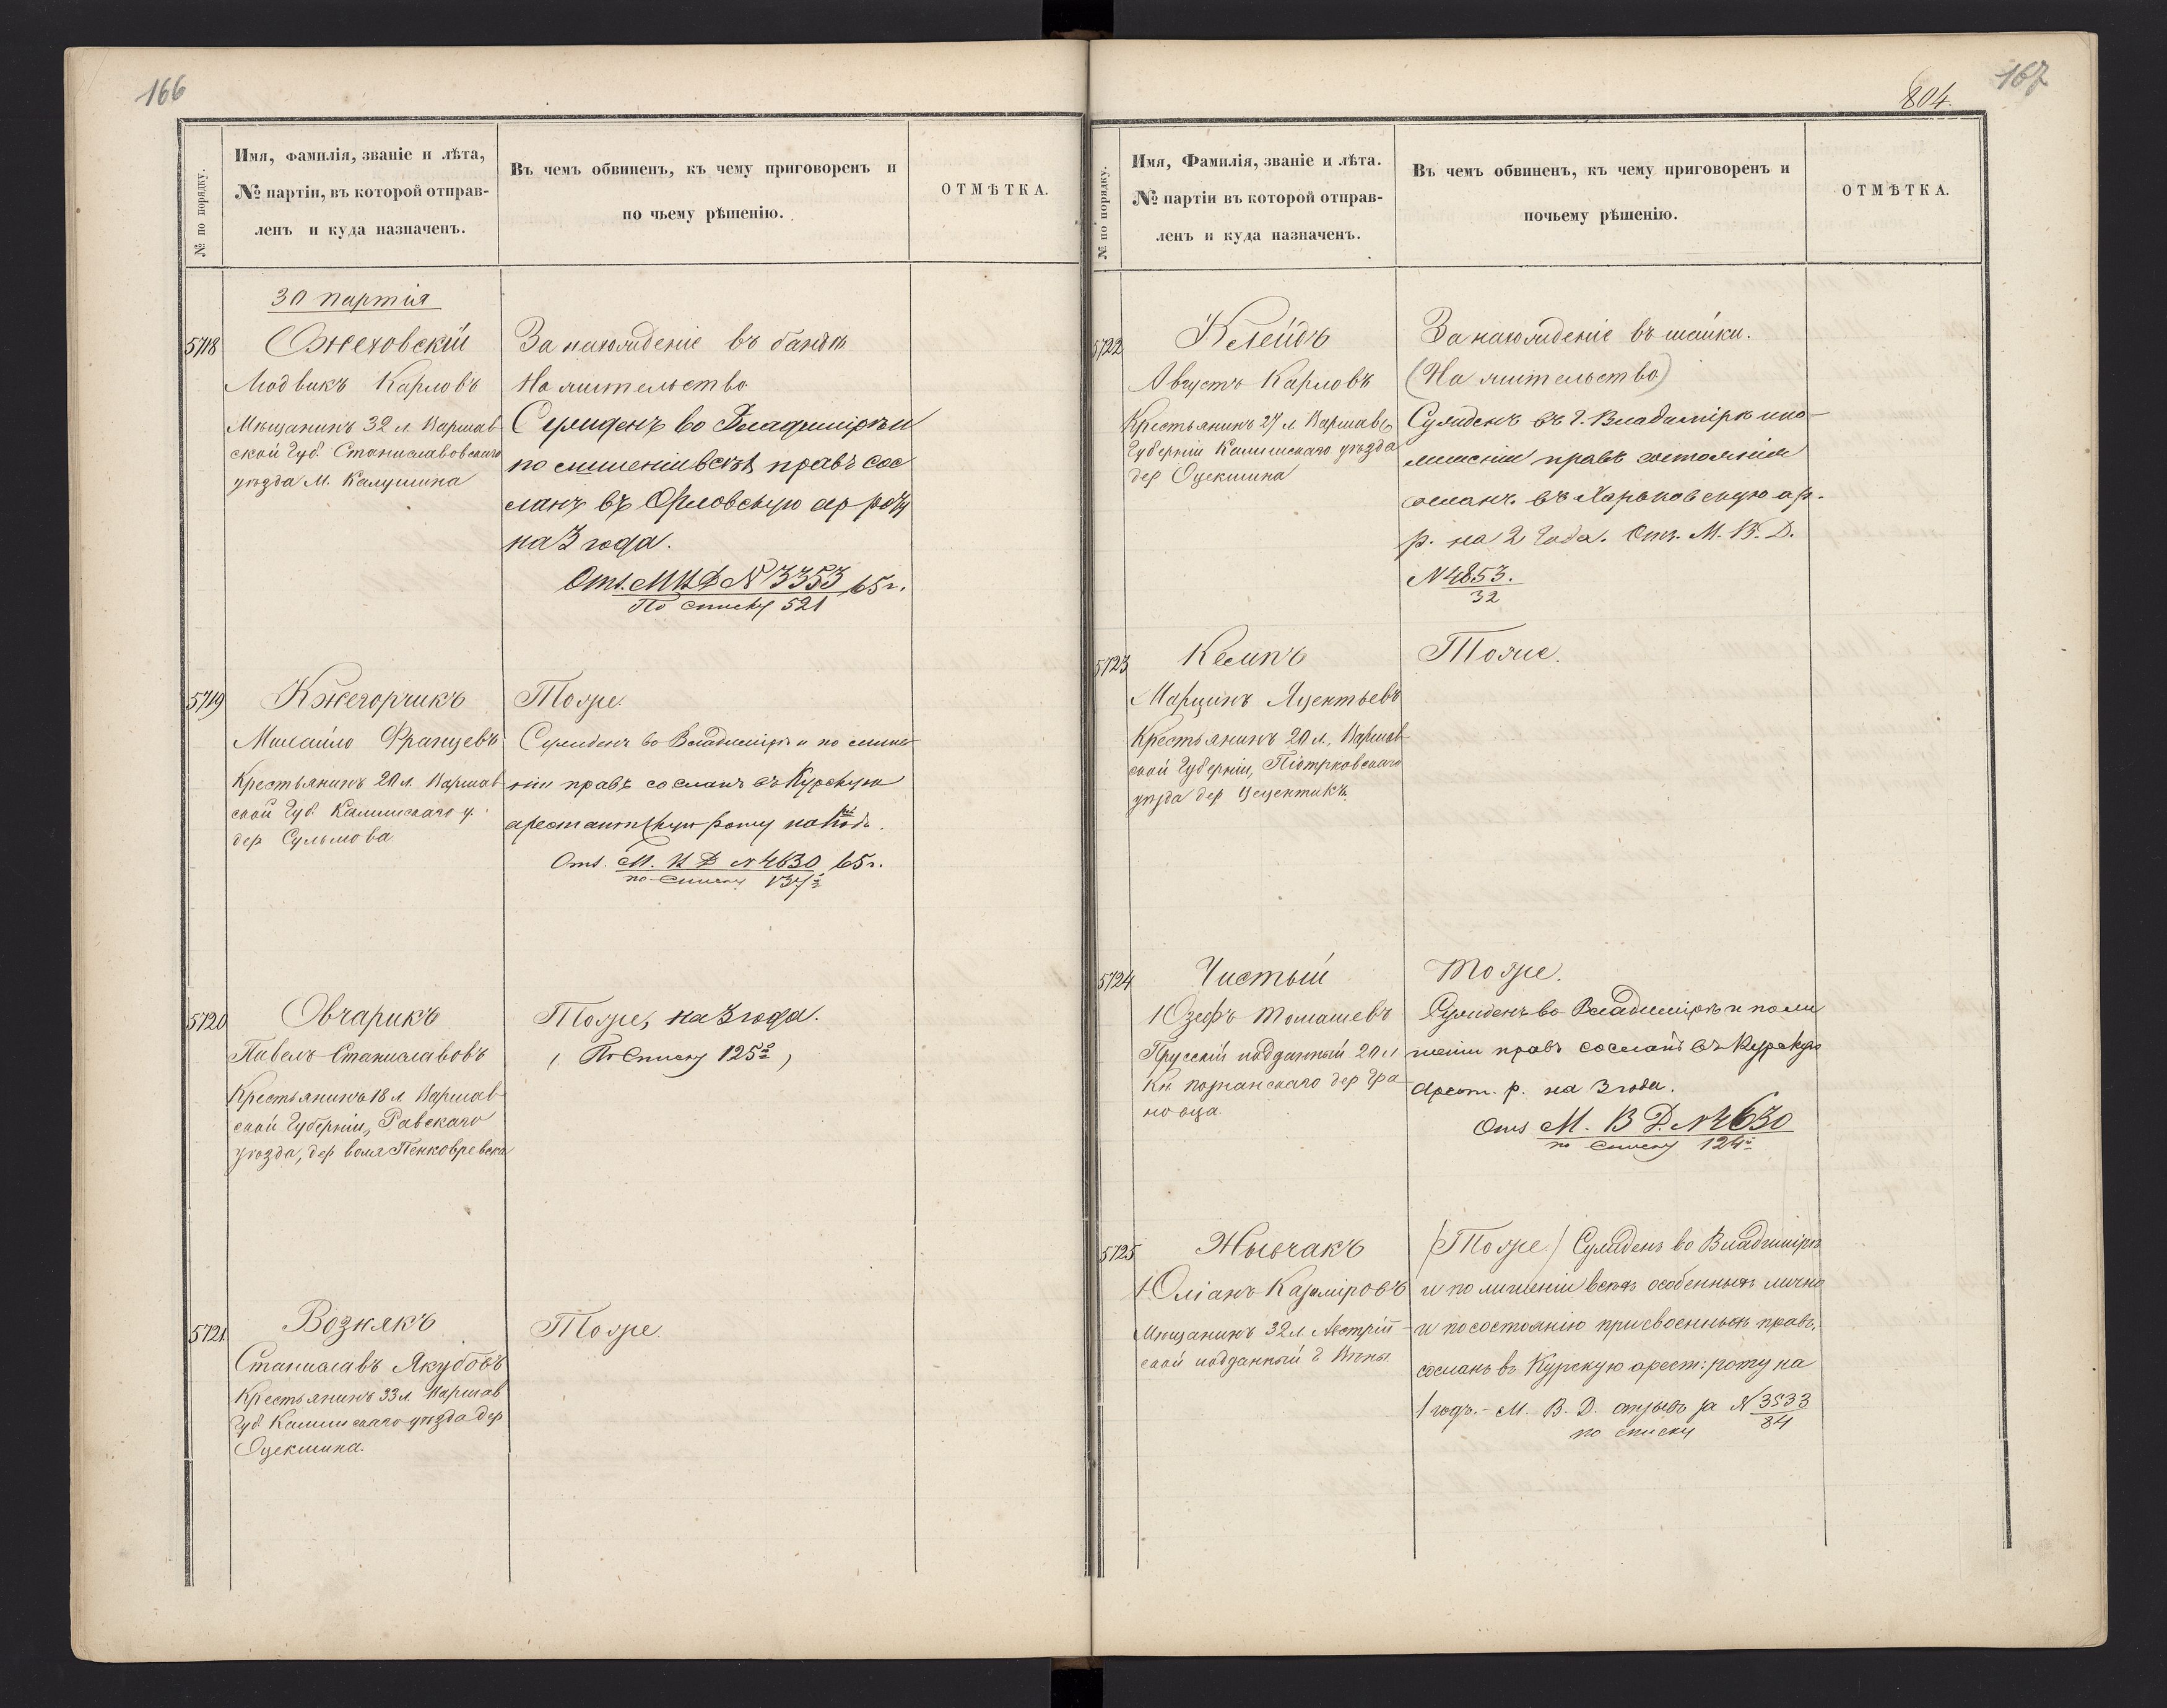 166
№ по порядку.
Имя, фамилія, званіе и лѣта,
№ партіи, въ которой отправ-
ленъ и куда назначенъ.
Въ чемъ обвиненъ, къ чему приговоренъ и
по чьему рѣшенію.
ОТМѢТКА.
30 партія
5718
Ожеховскій
Людвикъ Карловъ
Мѣщанинъ 32 л. Варшав-
ской Губ. Станиславовскаго
уѣзда М. Калушина
За нахожденіе въ бандѣ
На жительство
Сужденъ во Владимірѣ и
по лишеніи всѣхъ правъ сос
ланъ въ Орловскую ар роту
на 3 года.
Отз. М В Д № 3353 65 г.
По списку 521
5719
Кжегорчикъ
Михайло Францевъ
Крестьянинъ 20 л. Варшав
ской Губ. Калишскаго у.
дер Сульмова.
Тоже.
Сужденъ во Владимірѣ и по лише-
ніи правъ сосланъ въ Курскую
арестантскую роту на
Отз. М. В Д № 4630 65 г.
по списку 137
5720
Овчарикъ
Павелъ Станиславовъ
Крестьянинъ 18 л. Варшав-
ской Губерніи, Равскаго
уѣзда, дер воля
Тоже, на 3 года.
( По списку 125 )
5721
Вознякъ
Станиславъ Якубовъ
Крестьянинъ 33 л. Варшав
Губ. Калишскаго уѣзда дер
Оцекшина.
Тоже.
167
804.
№ по порядку.
Имя, Фамилія, званіе и лѣта.
№ партіи въ которой отправ-
ленъ и куда назначенъ.
Въ чемъ обвиненъ, къ чему приговоренъ и
почьему рѣшенію.
ОТМѢТКА.
5722
Клейдъ
Августъ Карловъ
Крестьянинъ 27 л. Варшавс
Губерніи Калишскаго уѣзда
дер Оцекшина
За нахожденіе въ шайки.
(На жительство)
Сужденъ въ г. Владимірѣ ипо-
лишеніи правъ состоянія
сосланъ въ Харьковскую ар.
р. на 2 года. Отз. М. В. Д.
№ 4853.
32
5723
Клинъ
Марцинъ Яцентьевъ
Крестьянинъ 20 л. Варшав-
ской Губерніи, Піотрковскаго
уѣзда дер
Тоже.
5724
Чистый
Юзефъ Томашевъ
Прусскій подданный 20 л
Кн. познанскаго дер Гра
новца
Тоже.
Сужденъ во Владимірѣ и поли
шеніи правъ сосланъ въ Курскую
Арест. р. на 3 года.
Отз М. В Д. № 4630
по списку 124
5725
Жывчакъ
Юліанъ Казиміровъ
Мѣщанинъ 32 л. Австрій-
ской подданный г Вѣны.
(Тоже.) Сужденъ во Владимірѣ
и по лишеніи всѣхъ особенныхъ лично
и посостоянію присвоенныхъ правъ,
сосланъ въ Курскую арест: роту на
1 годъ. - М. В. Д. отзывъ за № 3533
по списку 84